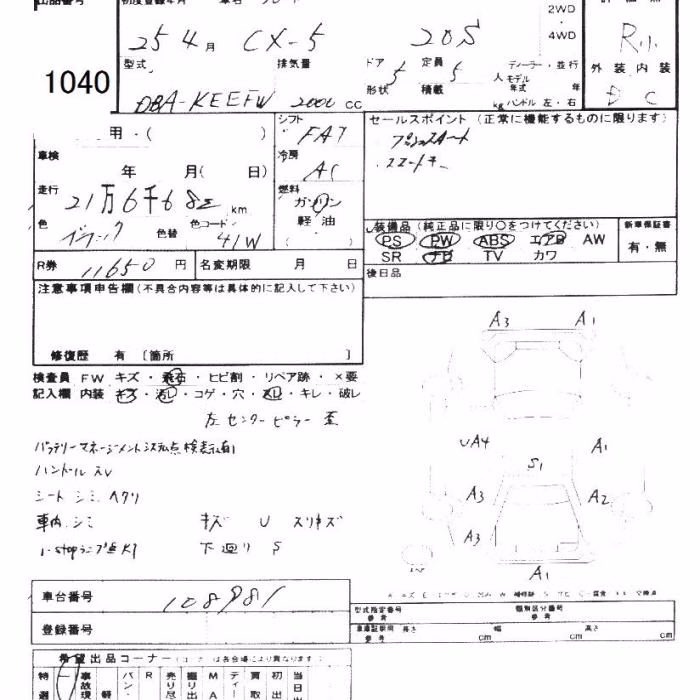 2WD
・
4WD
25 4月 CX-5 20S
R
外装 内装
D C
1040
型式 排気量
DBA-KEEFW 2000 CC
ドア 5 定員 5 人
形状 積載 kg
ディーラー・並行
モデル年式 年
ハンドル 左・右
シフト
FAT
セールスポイント (正常に機能するものに限ります)
プッシュスタート
スマートキー
用・( )
車検
年 月( 日)
冷房
AC
走行
21万6千68 km
燃料
ガソリン
軽油
( )
色
ブラック
色替
色コード
41W
装備品 (純正品に限り○をつけてください)
PS PW ABS エアB AW
SR ナビ TV カワ
新車保証書
有・無
R券 11650 円 名変期限 月 日
後日品
注意事項申告欄 (不具合内容等は具体的に記入して下さい)
修復歴 有 〔箇所 〕
検査員 FW キズ・飛石・ヒビ割・リペア跡・×要
記入欄 内装 キズ・汚レ・コゲ・穴・スレ・キレ・破レ
左センターピラー 歪
バッテリーマネージメントシステム点検表示有
ハンドル スレ
シート シミ ヘタリ
車内 シミ キズ U スリキズ
i-stopランプ点灯 下廻り S
A3 A1
UA4 A1
S1
A3 A2
A3
A1
車台番号 108981
登録番号
型式指定番号 参考 類別区分番号 参考
車庫証明用 参考 長さ cm 幅 cm 高さ cm
希望出品コーナー (コーナーは各会場により異なります)